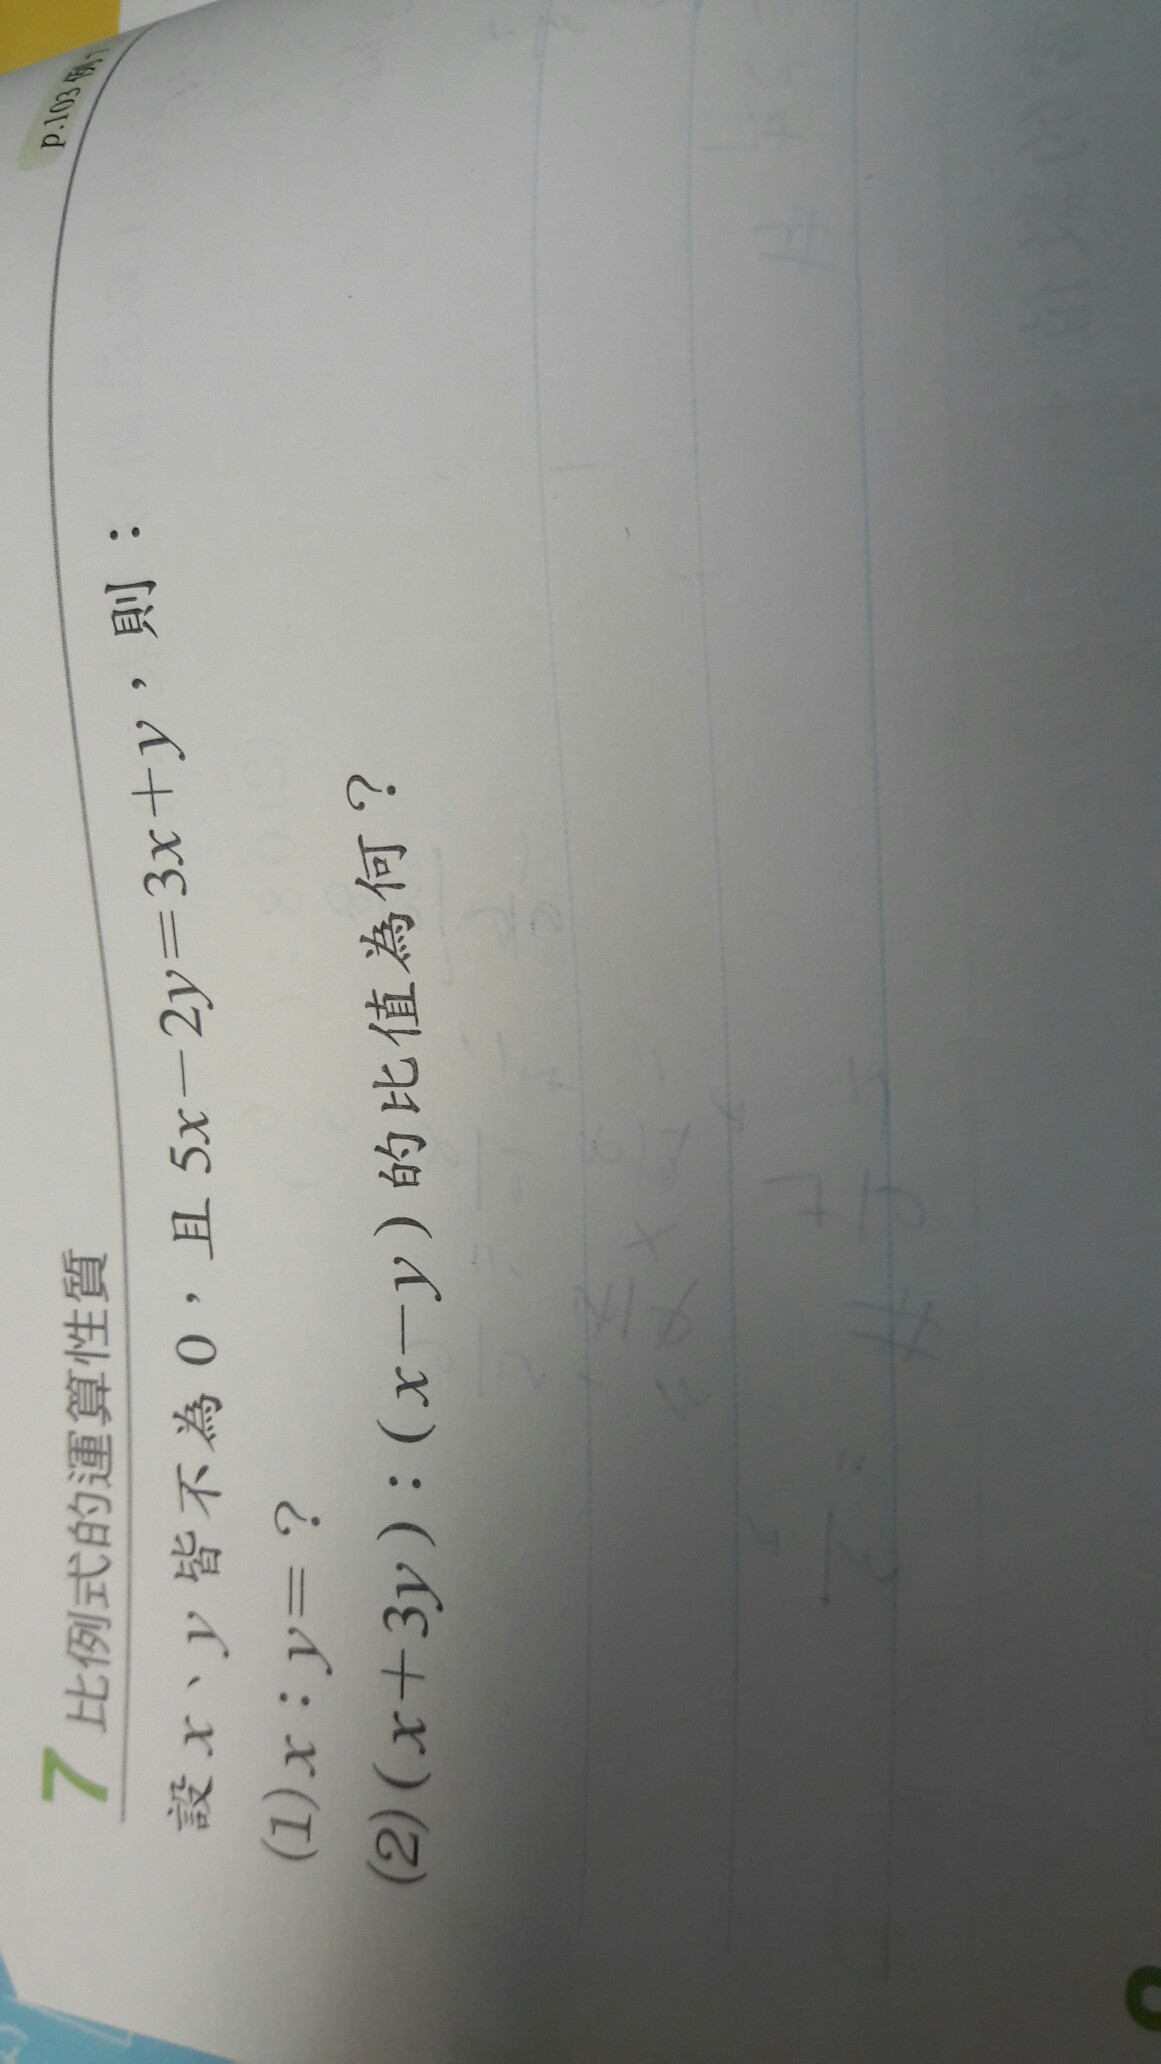 p.103 例7
7 比例式的運算性質
設 x、y 皆不為 0，且 5x－2y＝3x＋y，則：
(1) x：y＝？
(2) (x＋3y)：(x－y) 的比值為何？